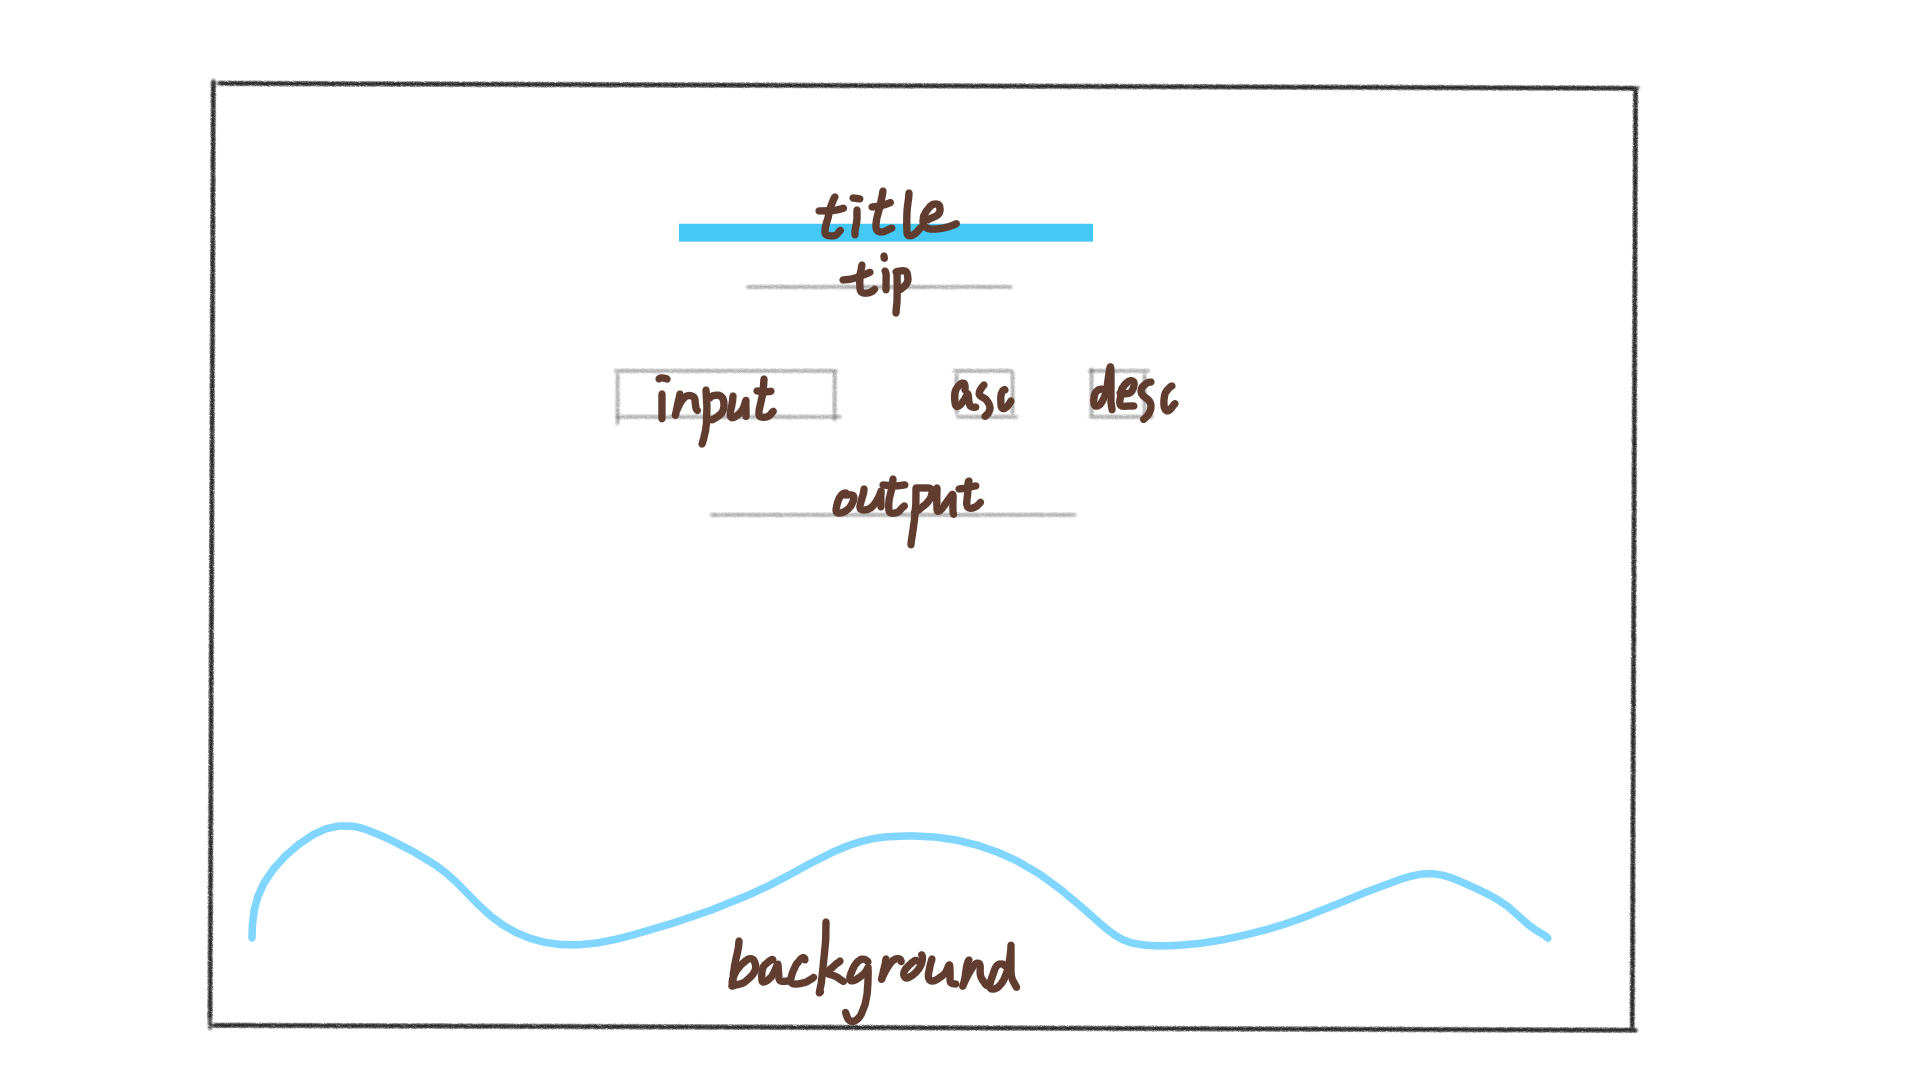 title
tip
input asc desc
output
background